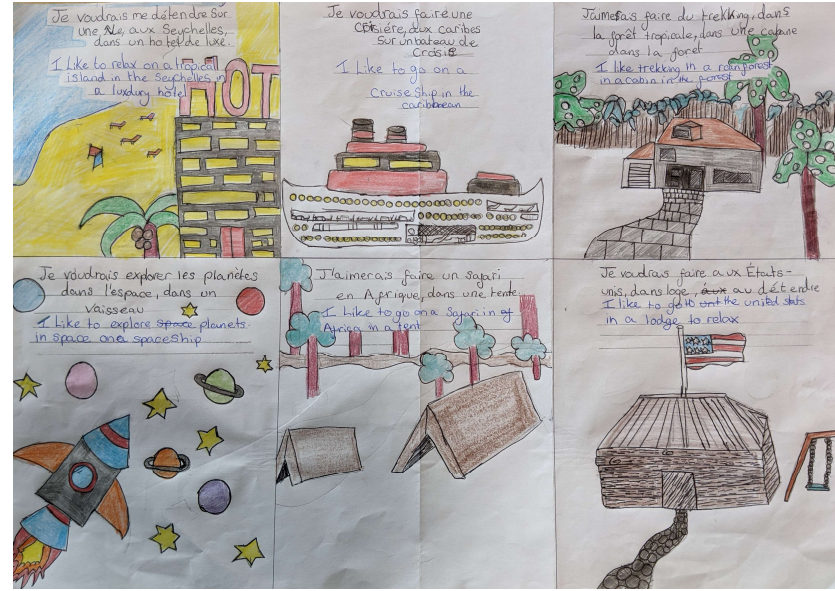 Je voudrais me détendre sur
une île, aux Seychelles,
dans un hotel de luxe.
I Like to relax on a tropical
island in the Seychelles in
a luxdury hotel
HOT
Je voudrais faire une
Croisiére, aux caribes
sur un bateau de
Croisie
I Like to go on a
Cruise Ship in the
caribbean
J'aimerais faire du trekking, dans
la forêt tropicale, dans une cabane
dans la foret
I like trekking in a rainforest
in a cabin in the forest
Je voudrais explorer les planètes
dans l'espace, dans un
Vaisseau
I Like to explore space planets
in space on a spaceship
J'laimerais faire un safari
en Afrique, dans une tente.
I Like to go on a Safari in of
Africa in a tent
Je voudrais faire aux États-
unis, dans loge, aux au détendre
I like to go to unt the united stats
in a lodge to relax